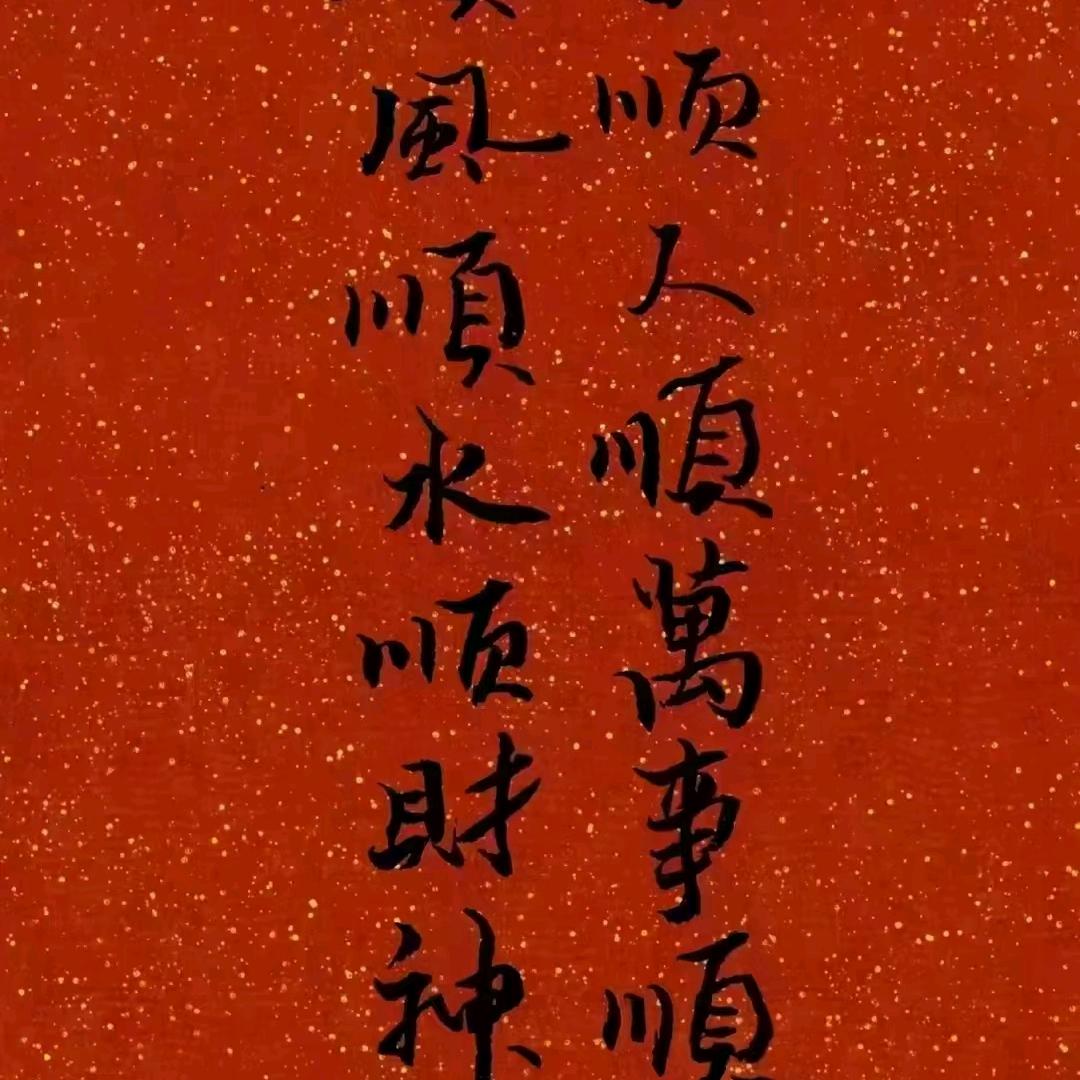 順人順萬事順
風順水順財神